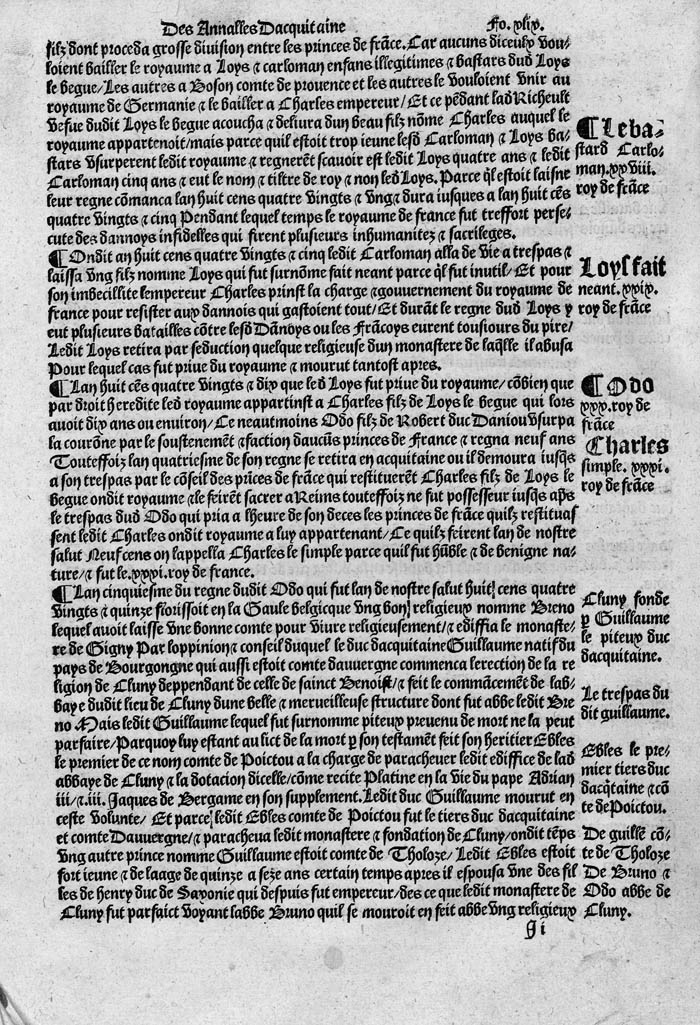 Des Annalles Dacquitaine
Fo. xlix.
filz dont proceda grosse division entre les princes de frāce. Car aucuns diceulx vou-
loient bailler le royaume a Loys ⁊ carloman enfans illegitimes ⁊ bastars dud Loys
le begue/Les autres a Boson comte de provence et les autres le vouloient vnir au
royaume de Germanie ⁊ le bailler a Charles empereur/Et ce pēdant lad Richeult
vefue dudit Loys le begue acoucha ⁊ delivra dun beau filz nōme Charles auquel le
royaume appartenoit/mais parce quil estoit trop ieune lesd Carloman ⁊ Loys ba-
stars vsurperent ledit royaume ⁊ regnerēt scauoir est ledit Loys quatre ans ⁊ ledit
Carloman cinq ans ⁊ eut le nom ⁊ tiltre de roy ⁊ non led Loys. Parce q̄l estoit laisne
leur regne cōmanca lan huit cens quatre vingts ⁊ vng ⁊ dura iusques a lan huit cēs
quatre vingts ⁊ cinq Pendant lequel temps le royaume de france fut tresfort perse-
cute des dannoys infidelles qui firent plusieurs inhumanitez ⁊ sacrileges.
¶ Ondit an huit cens quatre vingts ⁊ cinq ledit Carloman alla de vie a trespas ⁊
laissa vng filz nomme Loys qui fut surnōme fait neant parce q̄l fut inutil/Et pour
son imbecillite lempereur Charles prinst la charge ⁊ gouvernement du royaume de
france pour resister aux dannois qui gastoient tout/Et durāt le regne dud Loys y
eut plusieurs batailles cōtre lesd Dānoys ou les Frācoys eurent tousiours du pire/
Ledit Loys retira par seduction quelque religieuse dun monastere de laq̄lle il abusa
Pour lequel cas fut priue du royaume ⁊ mourut tantost apres.
¶ Lan huit cēs quatre vingts ⁊ dix que led Loys fut priue du royaume/cōbien que
par droit heredite led royaume appartinst a Charles filz de Loys le begue qui lors
auoit dix ans ou environ/Ce neautmoins Odo filz de Robert duc Daniou vsurpa
la courōne par le soustenemēt ⁊ faction daucūs princes de France ⁊ regna neuf ans
Touteffoiz lan quatriesme de son regne se retira en acquitaine ou il demoura iusq̄s
a son trespas par le cōseil des prīces de frāce qui restituerēt Charles filz de Loys le
begue ondit royaume ⁊ le feirēt sacrer a Reims touteffoiz ne fut possesseur iusq̄s ap̄s
le trespas dud Odo qui pria a lheure de son deces les princes de frāce quilz restituas
sent ledit Charles ondit royaume a luy appartenant/Ce quilz feirent lan de nostre
salut Neuf cens on lappella Charles le simple parce quil fut hūble ⁊ de benigne na-
ture/⁊ fut le.xxxi.roy de france.
¶ Lan cinquiesme du regne dudit Odo qui fut lan de nostre salut huit cens quatre
vingts ⁊ quinze florissoit en la Gaule belgicque vng bon religieux nomme Breno
lequel auoit laisse vne bonne comte pour viure religieusement/⁊ ediffia le monaste-
re de Gigny Par loppinion ⁊ conseil duquel le duc dacquitaine Guillaume natif du
pays de Bourgongne qui aussi estoit comte dauuergne commenca lerection de la re
ligion de Cluny deppendant de celle de sainct Benoist/⁊ feit le commācemēt de lab-
baye dudit lieu de Cluny dune belle ⁊ merueilleuse structure dont fut abbe ledit Bre
no Mais ledit Guillaume lequel fut surnomme piteux preuenu de mort ne la peut
parfaire/Parquoy luy estant au lict de la mort p son testamēt feit son heritier Ebles
le premier de ce nom comte de Poictou a la charge de paracheuer ledit ediffice de lad
abbaye de Cluny ⁊ la dotacion dicelle/cōme recite Platine en la vie du pape Adrian
iii/⁊.iii. Jaques de Bergame en son supplement. Ledit duc Guillaume mourut en
ceste volunte/ Et parce ledit Ebles comte de Poictou fut le tiers duc dacquitaine
et comte Dauuergne/⁊ paracheua ledit monastere ⁊ fondation de Cluny/ondit tēps
vng autre prince nomme Guillaume estoit comte de Tholoze/ Ledit Ebles estoit
fort ieune ⁊ de laage de quinze a seze ans certain temps apres il espousa vne des fil
les de henry duc de Saxonie qui despuis fut empereur/des ce que ledit monastere de
Cluny fut parfaict voyant labbe Bruno quil se mouroit en feit abbe vng religieux
Ji
¶ Le ba-
stard Carlo-
man.xxviii.
roy de frāce
Loys fait
neant.xxix.
roy de frāce
¶ Odo
xxx.roy de
frāce
Charles
simple. xxxi.
roy de frāce
Cluny fonde
p Guillaume
le piteux duc
dacquitaine.
Le trespas du
dit guillaume.
Ebles le pre-
mier tiers duc
dacq̄taine ⁊ cō
te de Poictou.
De guillē cō-
te de Tholoze
De Bruno ⁊
Odo abbe de
Cluny.